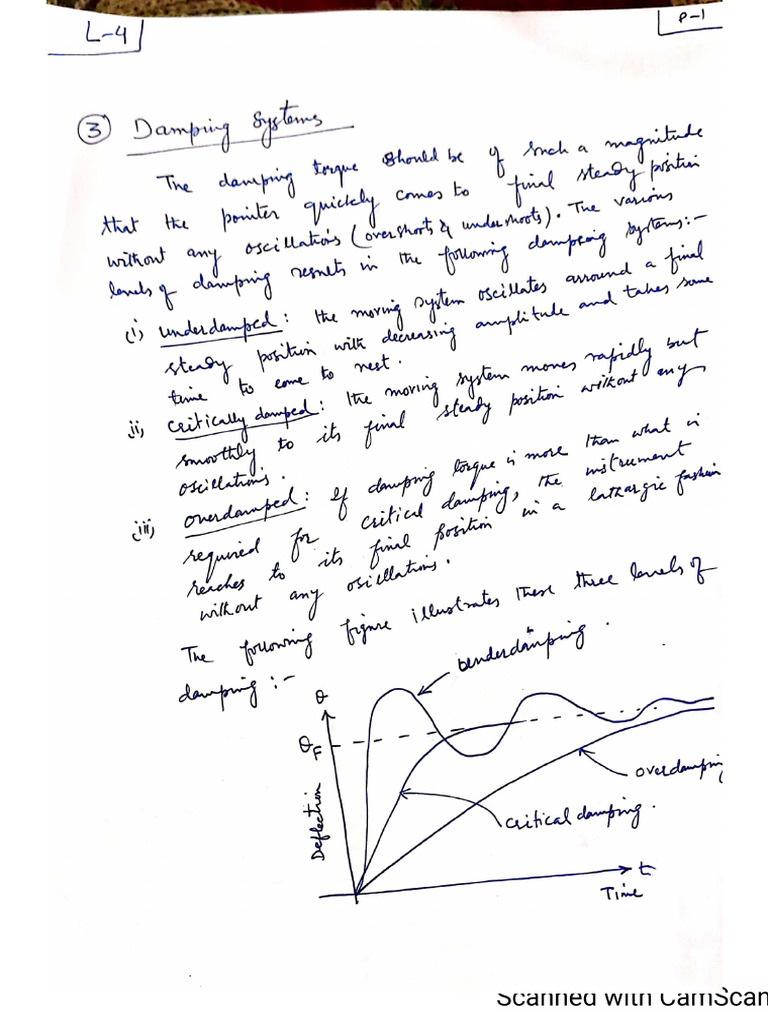 L-4
P-1
③ Damping Systems
The damping torque should be of such a magnitude
that the pointer quickly comes to final steady position
without any oscillations (overshoots & undershoots). The various
levels of damping results in the following dampping systems:-
(i) underdamped: the moving system oscillates arround a final
steady position with decreasing amplitude and takes some
time to come to rest.
ii, critically damped: the moving system moves rapidly but
smoothly to its final steady position without any
oscillations.
iii, overdamped: If damping torque is more than what is
required for critical damping, the instrument
reaches to its final position in a lathargic fashion
without any oscillations.
The following figure illustrates these three levels of
damping :-
θ
underdamping.
θF
Deflection
overdampin
critical damping.
t
Time
Scanned with CamScan